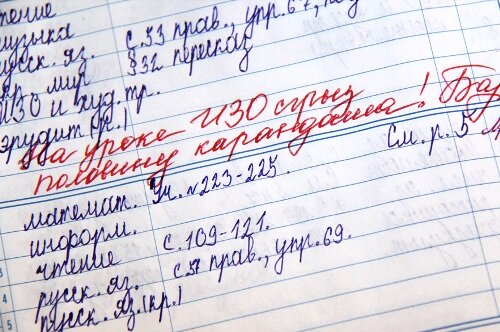 чтение
музыка
русск. яз. с.53 прав., упр.67,
окр. мир §32 пересказ
ИЗО и худ. тр.
эрудит (кр.)
На уроке ИЗО сгрыз
половину карандаша!
математ. Уч. №223-225. См. р. 5
информ.
чтение с.109-121.
русск. яз. с57 прав., упр.69.
русск. яз. (кр.)
3
4
5